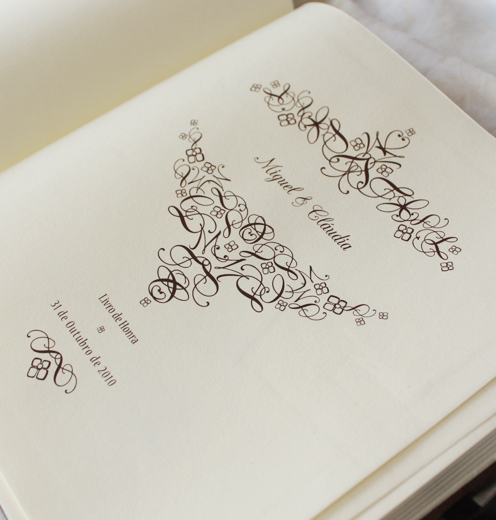 Miguel & Cláudia
Livro de Honra
31 de Outubro de 2010